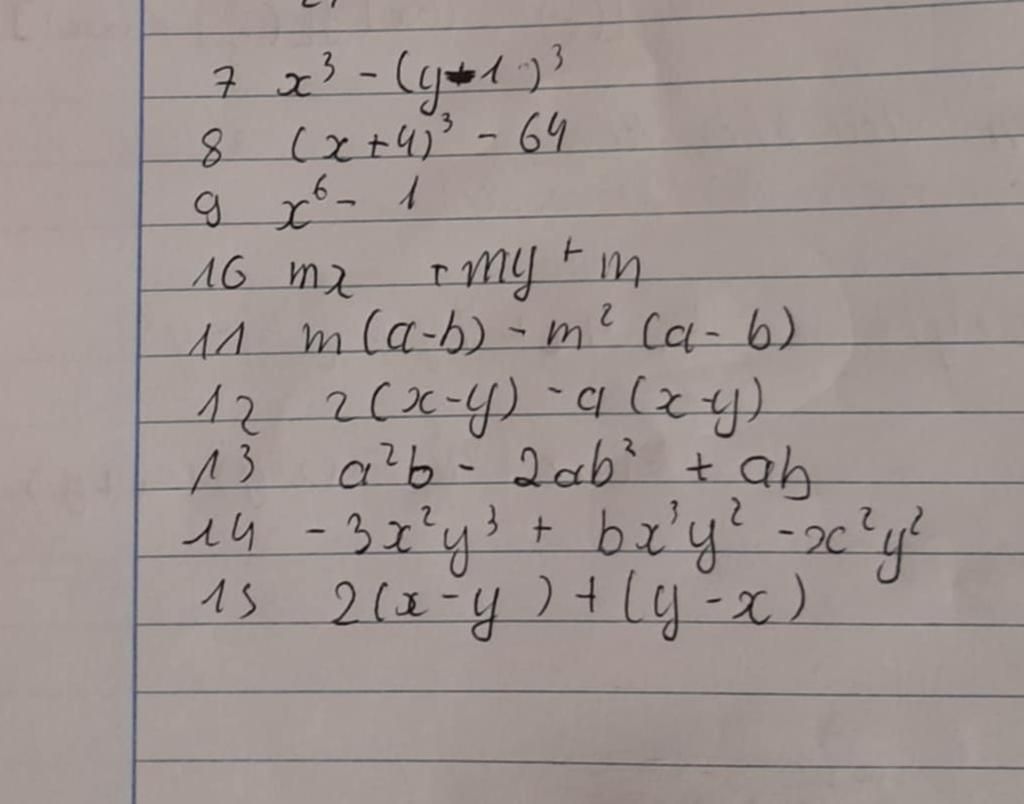 7 x³ - (y-1)³
8 (x+4)³ - 64
9 x⁶ - 1
10 mx + my + m
11 m(a-b) - m² (a-b)
12 2(x-y) - a(x-y)
13 a²b - 2ab² + ab
14 -3x²y³ + 6x³y² - x²y²
15 2(x-y) + (y-x)